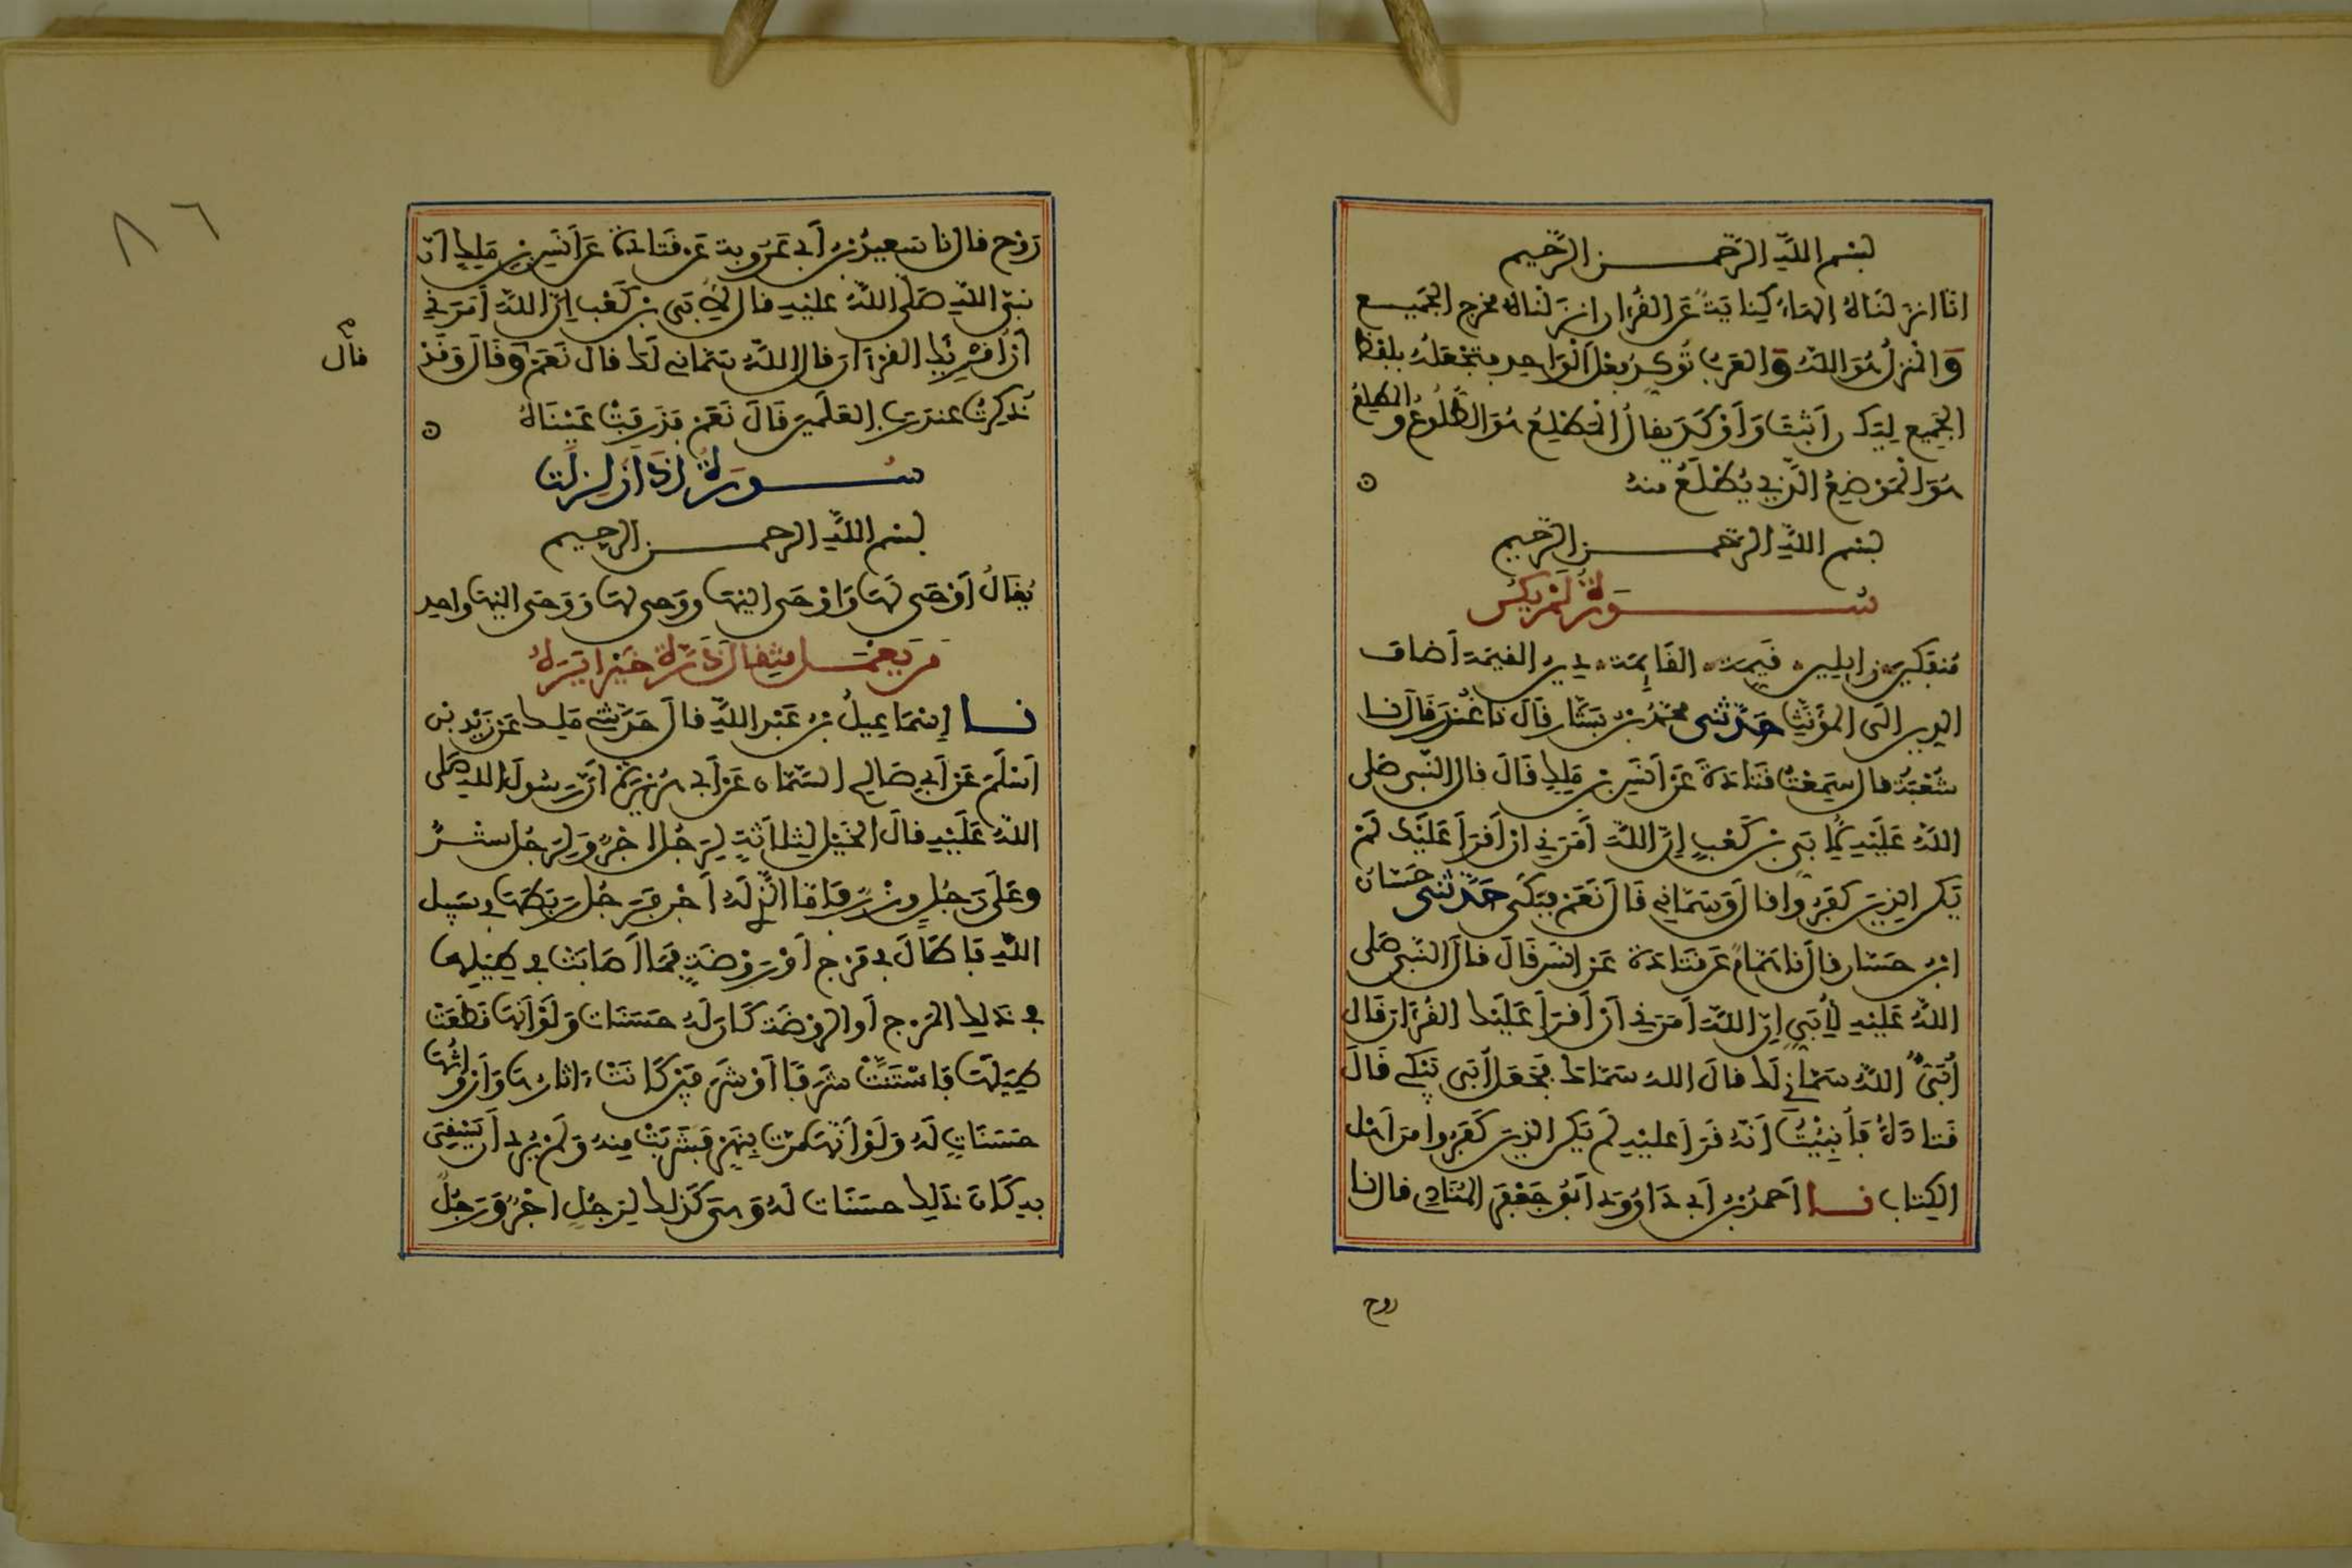 بسم الله الرحمن الرحيم
انا انزلناه الهاء كناية عن القران انزلناه مخرج الجميع
والمنزل هو الله والعرب توكد فعل الواحد فتجعله بلفظ
الجميع ليكـ راثبت واوكد يقال المطلع هو الطلوع والمطلع
هو الموضع الذي يطلع منه
بسم الله الرحمن الرحيم
سورة لم يكن
منفكين زايلين قيمة القايمة دين القيمة اضاف
الدين الى المؤنث حدثني محمد بن بشار قال نا غندر قال نا
شعبة قال سمعت قتادة عن انس بن ملك قال قال النبي صلى
الله عليه لابي بن كعب ان الله امرني ان اقرا عليك لم
يكن الذين كفروا قال وسماني قال نعم فبكى حدثني حسان
ابن حسان قال نا همام عن قتادة عن انس قال قال النبي صلى
الله عليه لأبي ان الله امرني ان اقرا عليك القرآن قال
أبي آلله سماني لك قال الله سماك فجعل أبي يبكي قال
قتادة فأنبئت انه قرا عليه لم يكن الذين كفروا من اهل
الكتاب نا احمد بن ابي داوود ابو جعفر المنادي قال نا
روح
٨٦
روح قال نا سعيد بن ابي عروبة عن قتادة عن انس بن ملك ان
نبي الله صلى الله عليه قال لأبي بن كعب ان الله امرني
ان أقرئك القرآن قال آلله سماني لك قال نعم وقال وقد
قال
ذكرت عند رب العلمين قال نعم فذرفت عيناه
سورة اذا زلزلت
بسم الله الرحمن الرحيم
يقال أوحى لها واوحى اليها ووحى لها ووحى اليها واحد
من يعمل مثقال ذرة خيرا يره
نا إسماعيل بن عبد الله قال حدثني ملك عن زيد بن
اسلم عن ابي صالح السمان عن ابي هريرة ان رسول الله صلى
الله عليه قال الخيل لثلاثة لرجل اجر ولرجل ستر
وعلى رجل وزر فاما الذي له اجر فرجل ربطها في سبيل
الله فاطال في مرج او روضة فما اصابت في طيلها
في ذلك المرج او الروضة كان له حسنات ولو انها قطعت
طيلها فاستنت شرفا او شرفين كانت ءاثارها وارواثها
حسنات له ولو انها مرت بنهر فشربت منه ولم يرد ان يسقي
به كان ذلك حسنات له وهي كذلك لرجل اجر ورجل